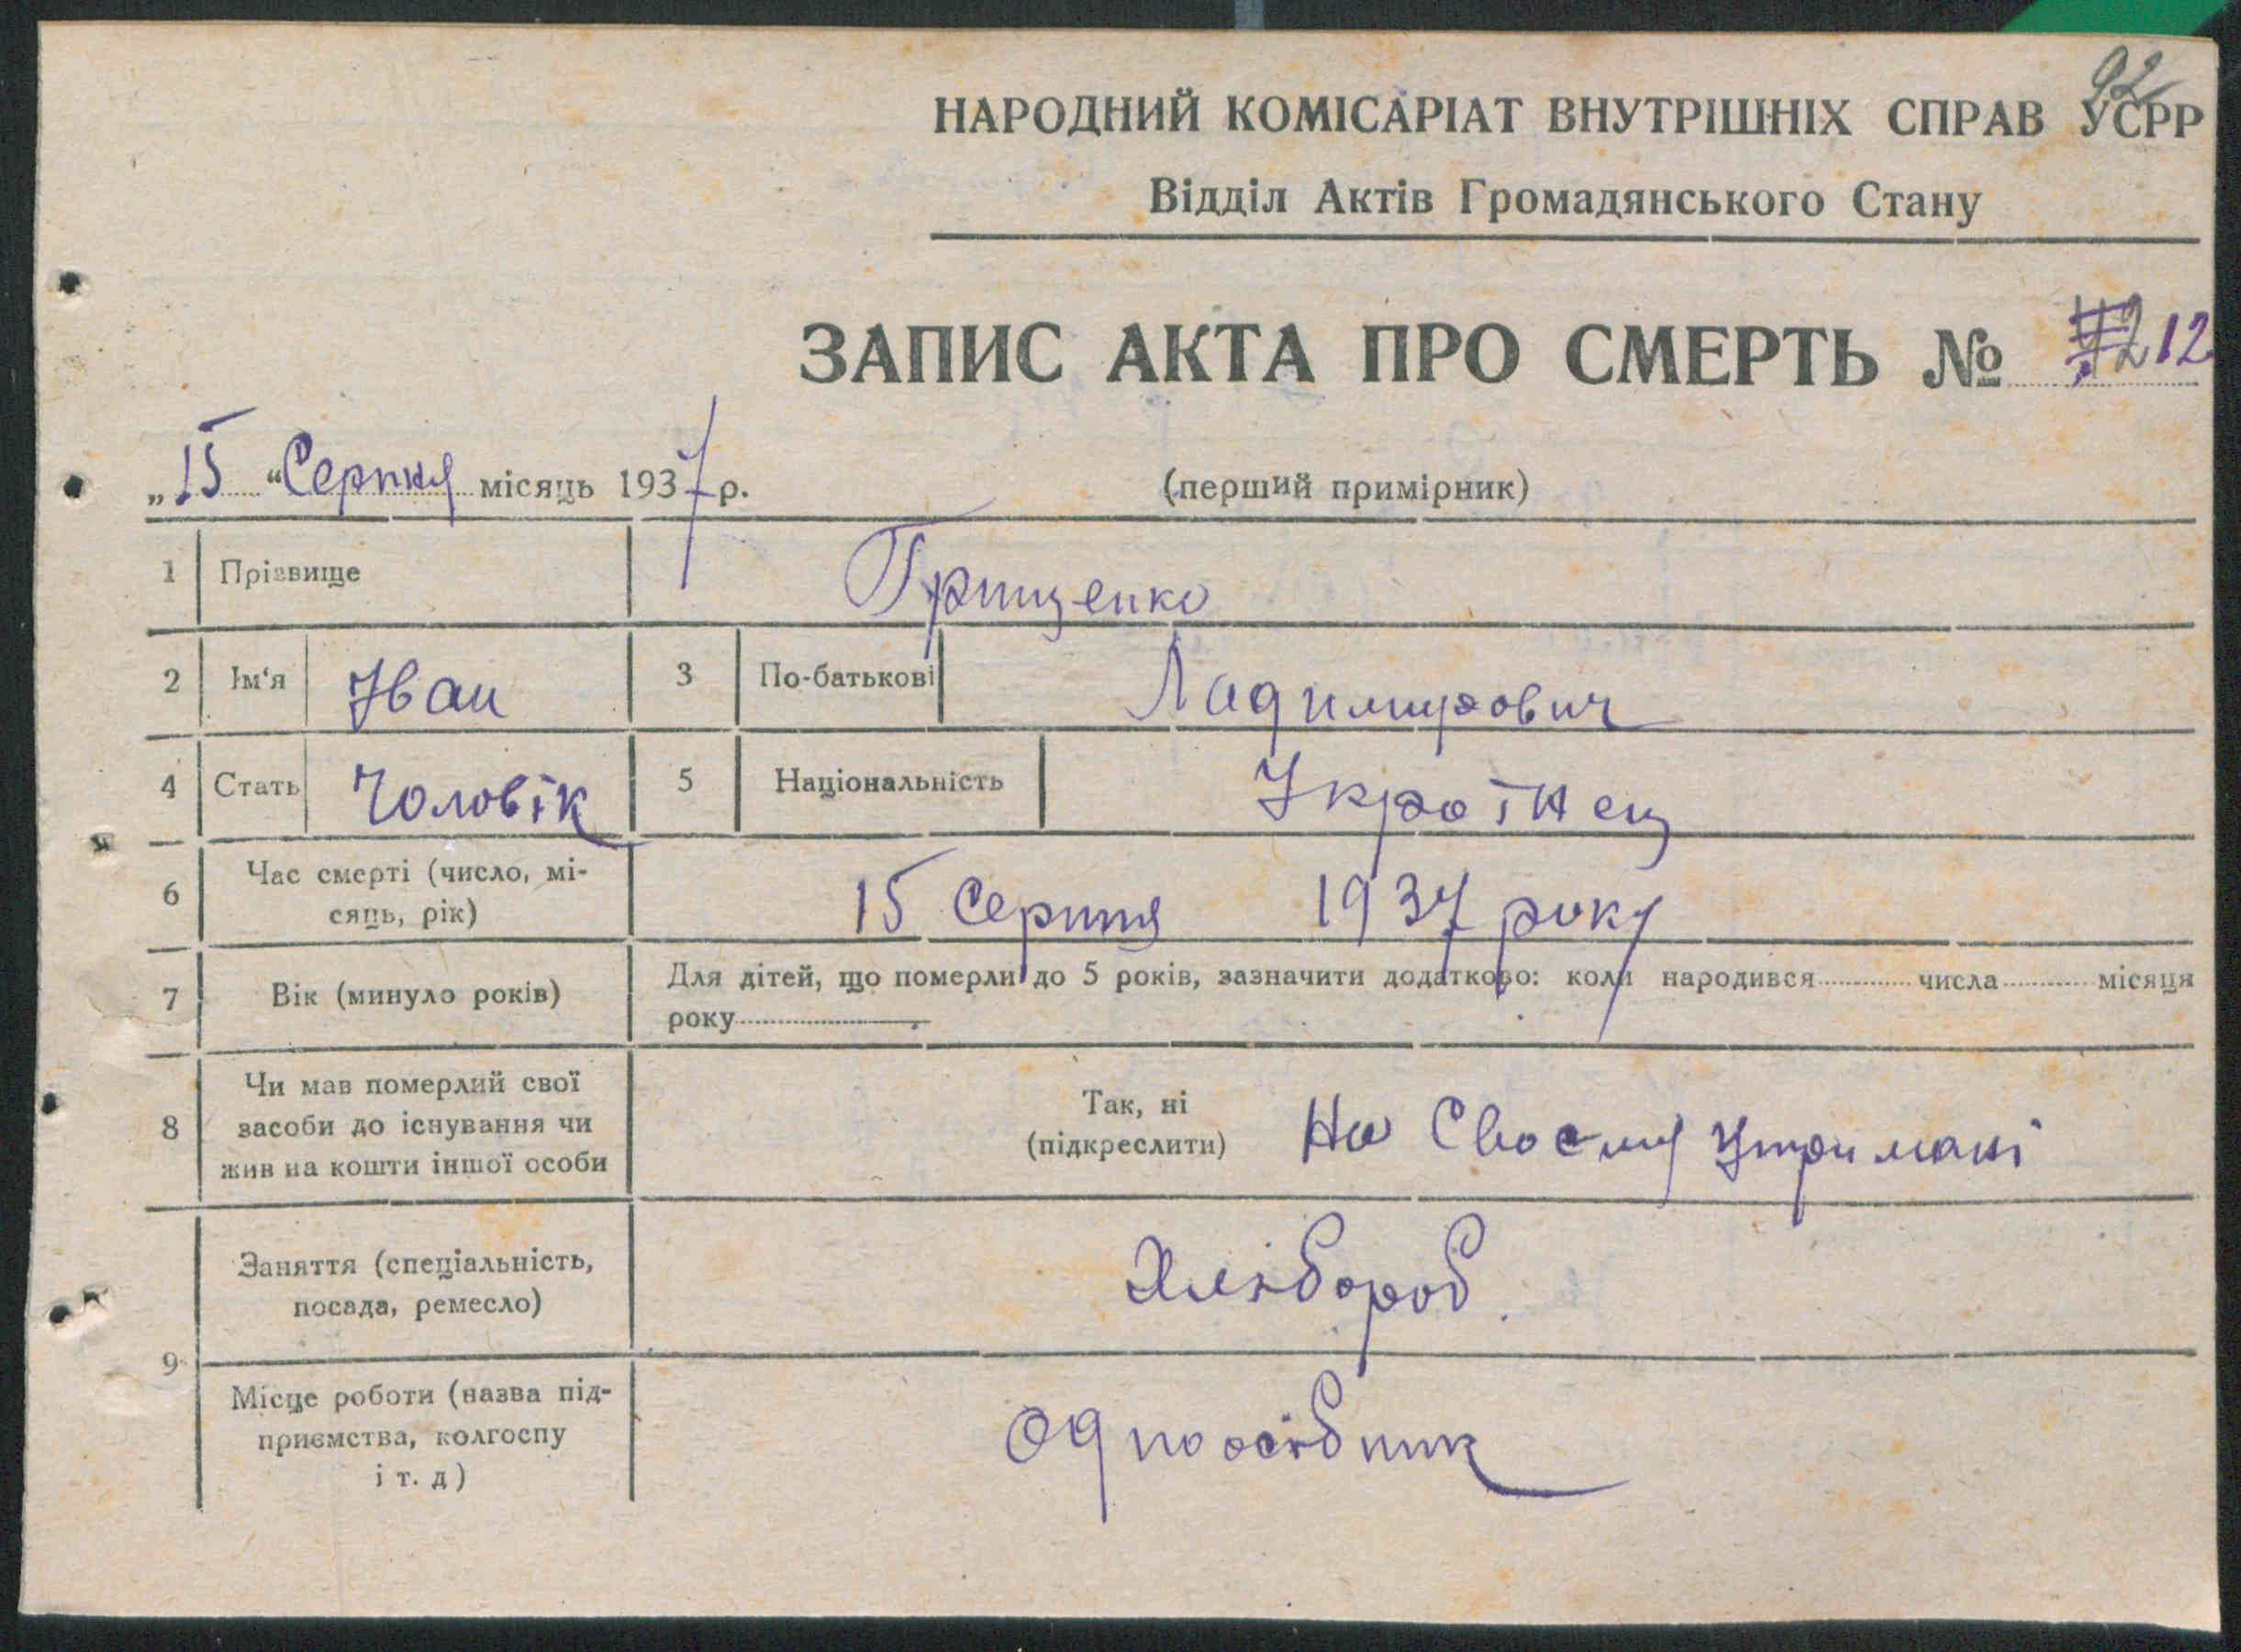 92
НАРОДНИЙ КОМІСАРІАТ ВНУТРІШНІХ СПРАВ УСРР
Відділ Актів Громадянського Стану
ЗАПИС АКТА ПРО СМЕРТЬ № 212
„15“ Серпня місяць 1937 р.
(перший примірник)
1 Прізвище Грищенко
2 Ім‘я Іван 3 По-батькові Ладимирович
4 Стать Чоловік 5 Національність Українец
6 Час смерті (число, мі-
сяць, рік) 15 Серпня 1937 року
7 Вік (минуло років) Для дітей, що померли до 5 років, зазначити додатково: коли народився числа місяця
року
8 Чи мав померлий свої
засоби до існування чи
жив на кошти іншої особи
Так, ні
(підкреслити) На Своєму утримані
9 Заняття (спеціальність,
посада, ремесло) Хлібороб.
Місце роботи (назва під-
приємства, колгоспу
і т. д) Одноосібник